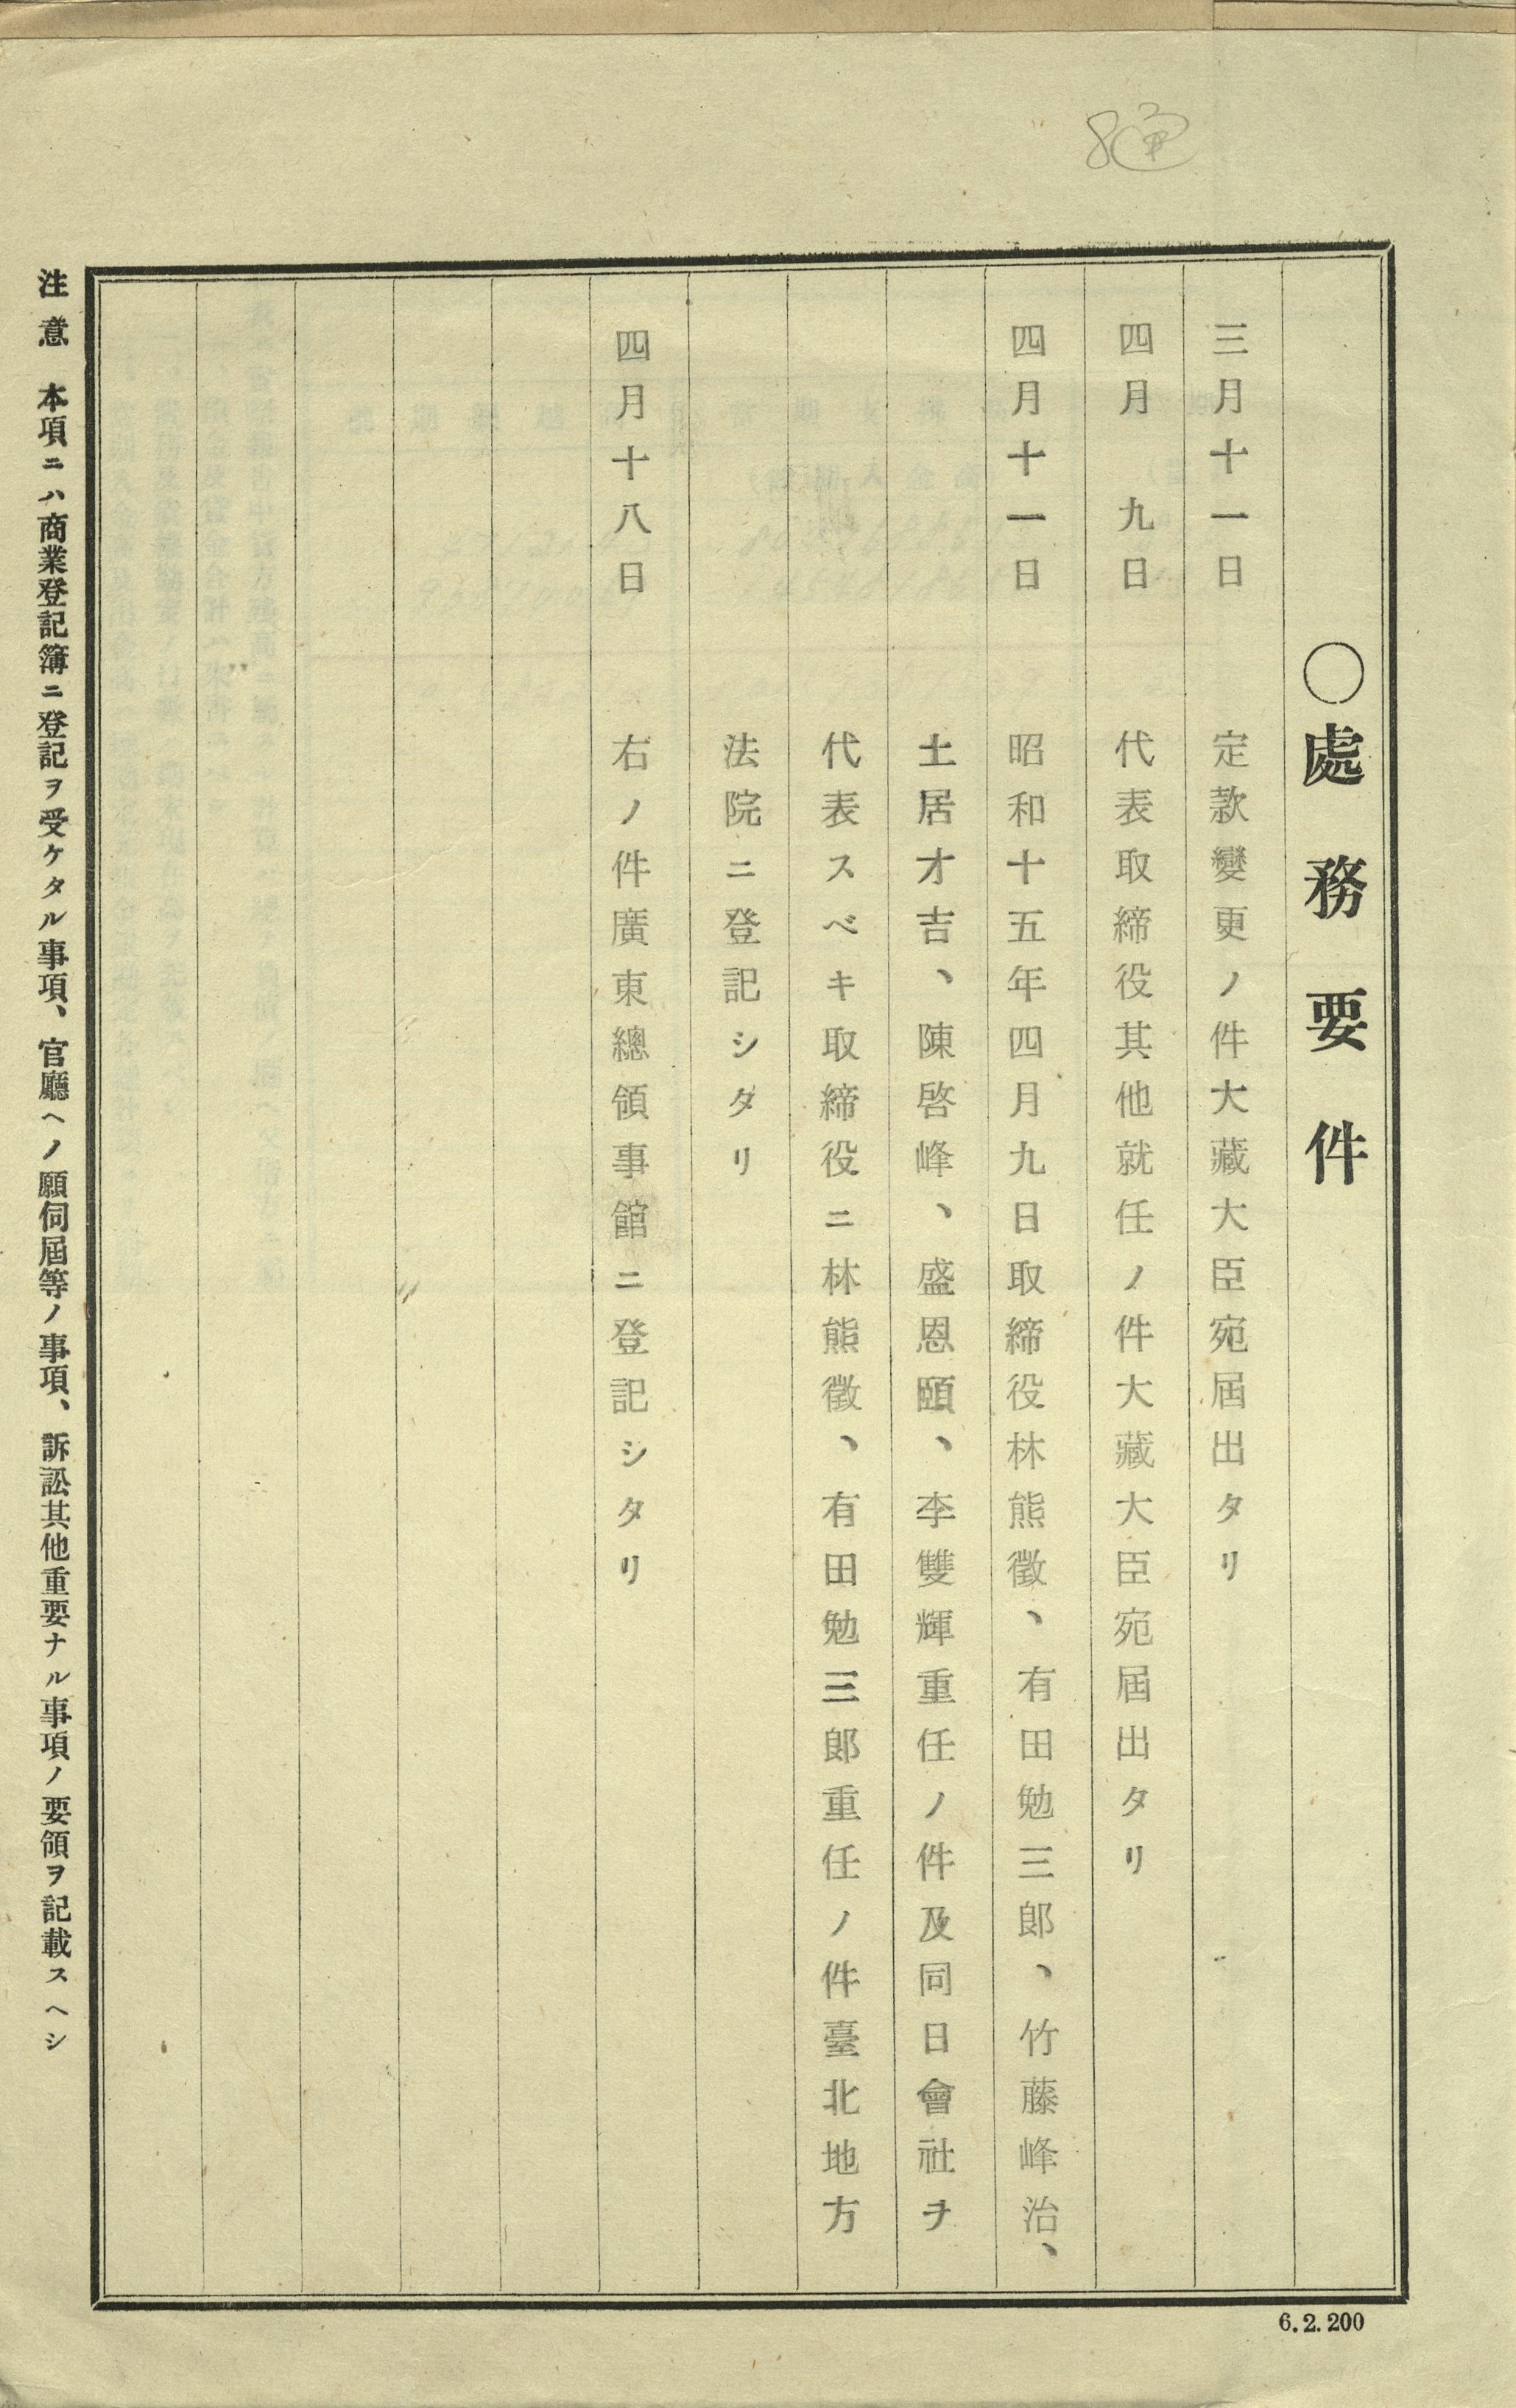 ○處務要件
三月十一日　定款變更ノ件大藏大臣宛屆出タリ
四月　九日　代表取締役其他就任ノ件大藏大臣宛屆出タリ
四月十一日　昭和十五年四月九日取締役林熊徵、有田勉三郎、竹藤峰治、
土居才吉、陳啓峰、盛恩頤、李雙輝重任ノ件及同日會社ヲ
代表スベキ取締役ニ林熊徵、有田勉三郎重任ノ件臺北地方
法院ニ登記シタリ
四月十八日　右ノ件廣東總領事館ニ登記シタリ
注意　本項ニハ商業登記簿ニ登記ヲ受ケタル事項、官廳ヘノ願伺屆等ノ事項、訴訟其他重要ナル事項ノ要領ヲ記載スヘシ
6.2.200